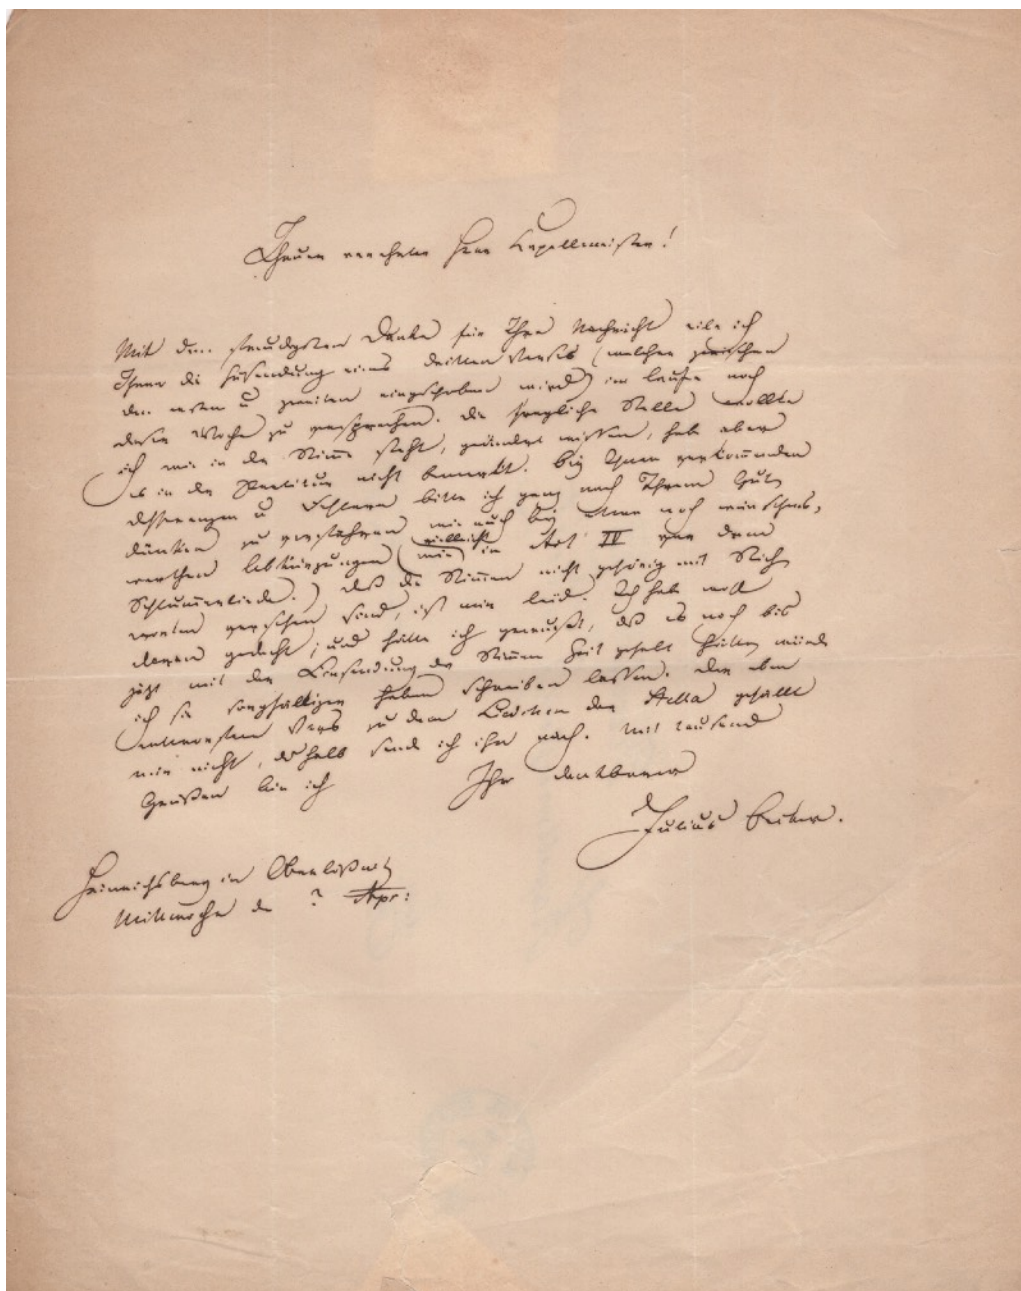 Theurer verehrter Herr Kapellmeister!
Mit dem freudigsten Danke für Ihre Nachricht eile ich
Ihnen die Zusendung eines dritten Verses (welcher zwischen
den ersten u zweiten eingeschoben wird) im Laufe noch
dieser Woche zu versprechen. Die fragliche Stelle wollte
ich wie in der Stimme steht, geändert wissen, hab aber
es in der Partitur nicht bemerkt. Bei Ihnen vorkommenden
Differenzen u Fehlern bitte ich ganz nach Ihrem Gut
dünken zu verfahren wie auch bei etwa noch wünschens-
werthen Abkürzungen (vielleicht in Act IV vor dem
Schlummerliede.) Daß die Stimmen nicht gehörig mit Stich
worten versehen sind, ist mir leid. Ich hab wohl
daran gedacht, und hätte ich gewußt, daß es noch bis
jetzt mit der Einsendung der Stimmen Zeit gehabt hätte, würde
ich sie sorgfältiger haben schreiben lassen. Der eben
entworfene Vers zu dem Liedchen der Stella gefällt
mir nicht, deshalb sende ich ihn nach. Mit tausend
Grüßen bin ich
Ihr dankbarer
Julius Becker.
Heinrichsburg in Oberlößnitz
Mittwochs d ? Apr: